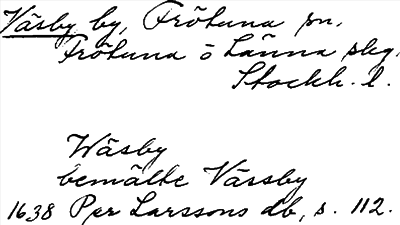 Väsby by, Frötuna sn,
Frötuna o Länna skg,
Stockh. l.
Wäsby
bemälte Vässby
1638 Per Larssons db, s. 112.